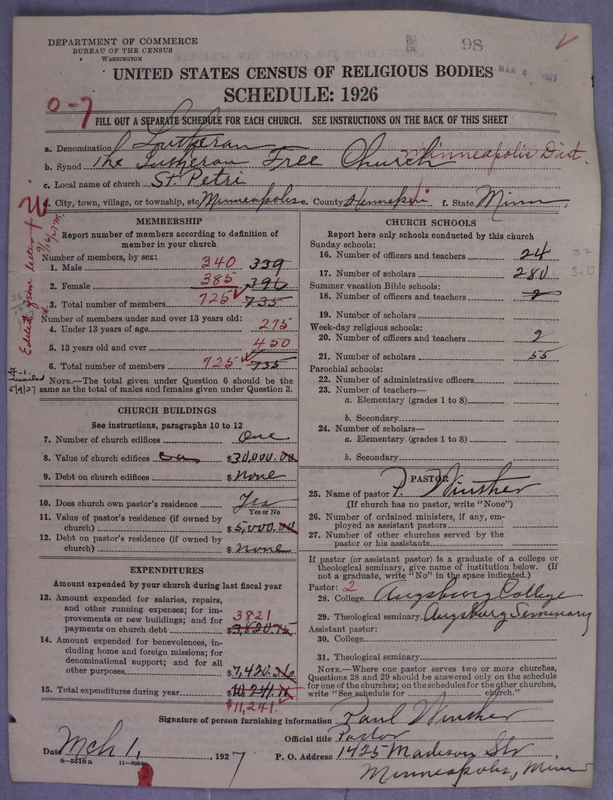 DEPARTMENT OF COMMERCE
BUREAU OF THE CENSUS
WASHINGTON
98
MAR 4 1927
UNITED STATES CENSUS OF RELIGIOUS BODIES
SCHEDULE: 1926
0-7
FILL OUT A SEPARATE SCHEDULE FOR EACH CHURCH. SEE INSTRUCTIONS ON THE BACK OF THIS SHEET
a. Denomination Lutheran
b. Synod The Lutheran Free Church Minneapolis Dist.
c. Local name of church St. Petri
d. City, town, village, or township, etc. Minneapolis e. County Hennepin f. State Minn
MEMBERSHIP
Report number of members according to definition of
member in your church
Number of members, by sex:
1. Male 340 339
2. Female 385 396
3. Total number of members 725 735
Number of members under and over 13 years old:
4. Under 13 years of age 275
5. 13 years old and over 450
6. Total number of members 725 735
NOTE.—The total given under Question 6 should be the
same as the total of males and females given under Question 3.
CHURCH BUILDINGS
See instructions, paragraphs 10 to 12
7. Number of church edifices One
8. Value of church edifices $30,000.00
9. Debt on church edifices $ None
10. Does church own pastor's residence Yes
Yes or No
11. Value of pastor's residence (if owned by
church) $5,000.00
12. Debt on pastor's residence (if owned by
church) $ None
EXPENDITURES
Amount expended by your church during last fiscal year
13. Amount expended for salaries, repairs,
and other running expenses; for im-
provements or new buildings; and for 3821
payments on church debt $3,820.75
14. Amount expended for benevolences, in-
cluding home and foreign missions; for
denominational support; and for all
other purposes $7,420.36
15. Total expenditures during year
$11,241.
CHURCH SCHOOLS
Report here only schools conducted by this church
Sunday schools:
16. Number of officers and teachers 24
17. Number of scholars 280
Summer vacation Bible schools:
18. Number of officers and teachers 2
19. Number of scholars
Week-day religious schools:
20. Number of officers and teachers 2
21. Number of scholars 55
Parochial schools:
22. Number of administrative officers
23. Number of teachers—
a. Elementary (grades 1 to 8)
b. Secondary
24. Number of scholars—
a. Elementary (grades 1 to 8)
b. Secondary
PASTOR
25. Name of pastor P. Winther
(If church has no pastor, write "None")
26. Number of ordained ministers, if any, em-
ployed as assistant pastors
27. Number of other churches served by the
pastor or his assistants
If pastor (or assistant pastor) is a graduate of a college or
theological seminary, give name of institution below. (If
not a graduate, write "No" in the space indicated.)
Pastor: 2
28. College Augsburg College
29. Theological seminary Augsburg Seminary
Assistant pastor:
30. College
31. Theological seminary
NOTE.—Where one pastor serves two or more churches,
Questions 28 and 29 should be answered only on the schedule
for one of the churches; on the schedules for the other churches,
write "See schedule for church."
Signature of person furnishing information Paul Winther
Official title Pastor
Date Mch 1, 1927 P. O. Address 1425 Madison Str
8—5518a Minneapolis, Minn